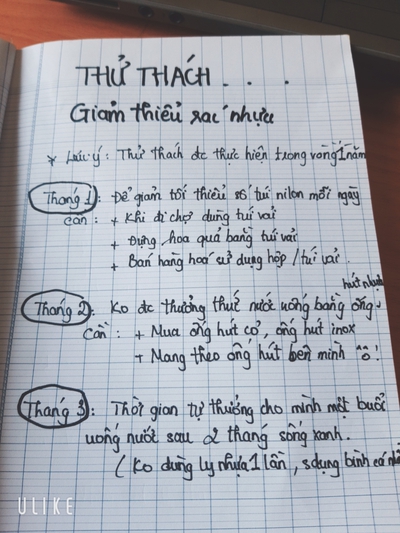 THỬ THÁCH . . .
Giảm thiểu rác nhựa
* Lưu ý : Thử thách đc thực hiện trong vòng 1 năm
Tháng 1 : Để giảm tối thiểu số túi nilon mỗi ngày
cần : + Khi đi chợ dùng túi vải
+ Đựng hoa quả bằng túi vải
+ Bán hàng hoá sử dụng hộp / túi vải .
Tháng 2 : Ko đc thưởng thức nước uống bằng ống hút nhựa
Cần : + Mua ống hút cỏ, ống hút inox
+ Mang theo ống hút bên mình ô ô !
Tháng 3 : Thời gian tự thưởng cho mình một buổi
uống nước sau 2 tháng sống xanh .
( Ko dùng ly nhựa 1 lần , sdụng bình cá nhâ
ULIKE